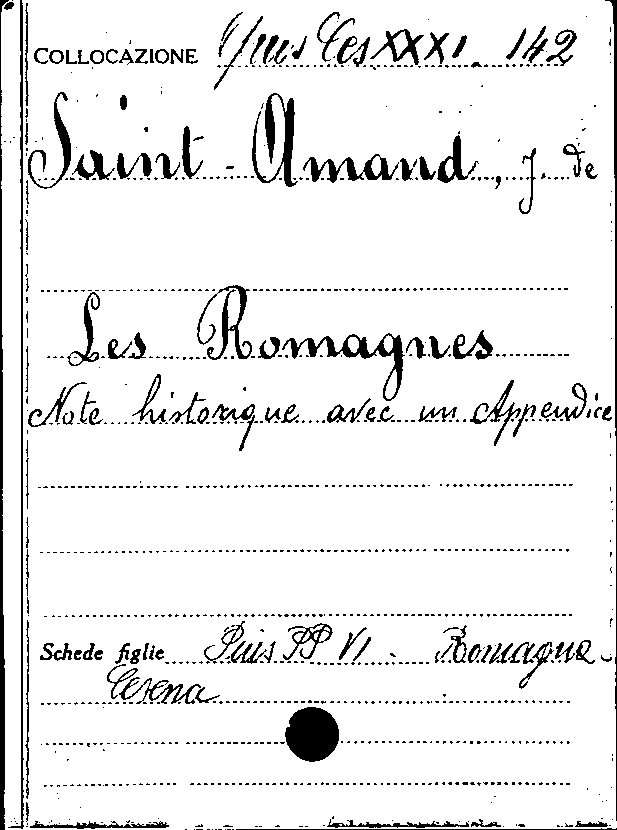 COLLOCAZIONE Opus Ces XXXI. 142
Saint-Amand, J. de
Les Romagnes
Note historique avec un Appendice
Schede figlie Pius PP VI - Romagna -
Cesena